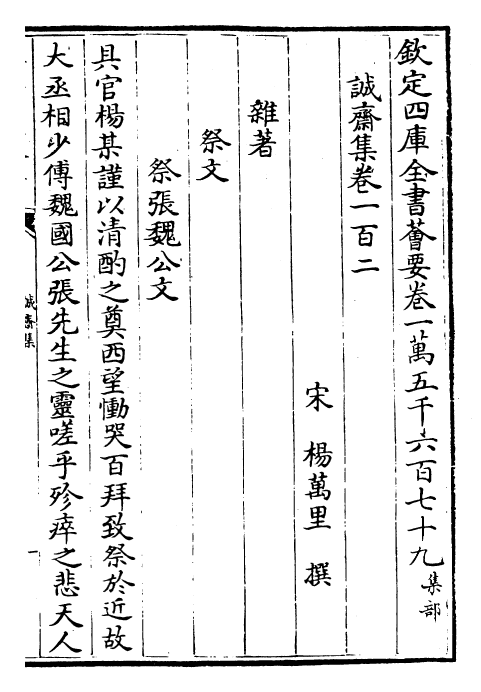 欽定四庫全書薈要卷一萬五千六百七十九集部
誠齋集卷一百二
宋 楊萬里 撰
雜著
祭文
祭張魏公文
具官楊某謹以清酌之奠西望慟哭百拜致祭於近故
大丞相少傅魏國公張先生之靈嗟乎殄瘁之悲天人
誠齋集
一